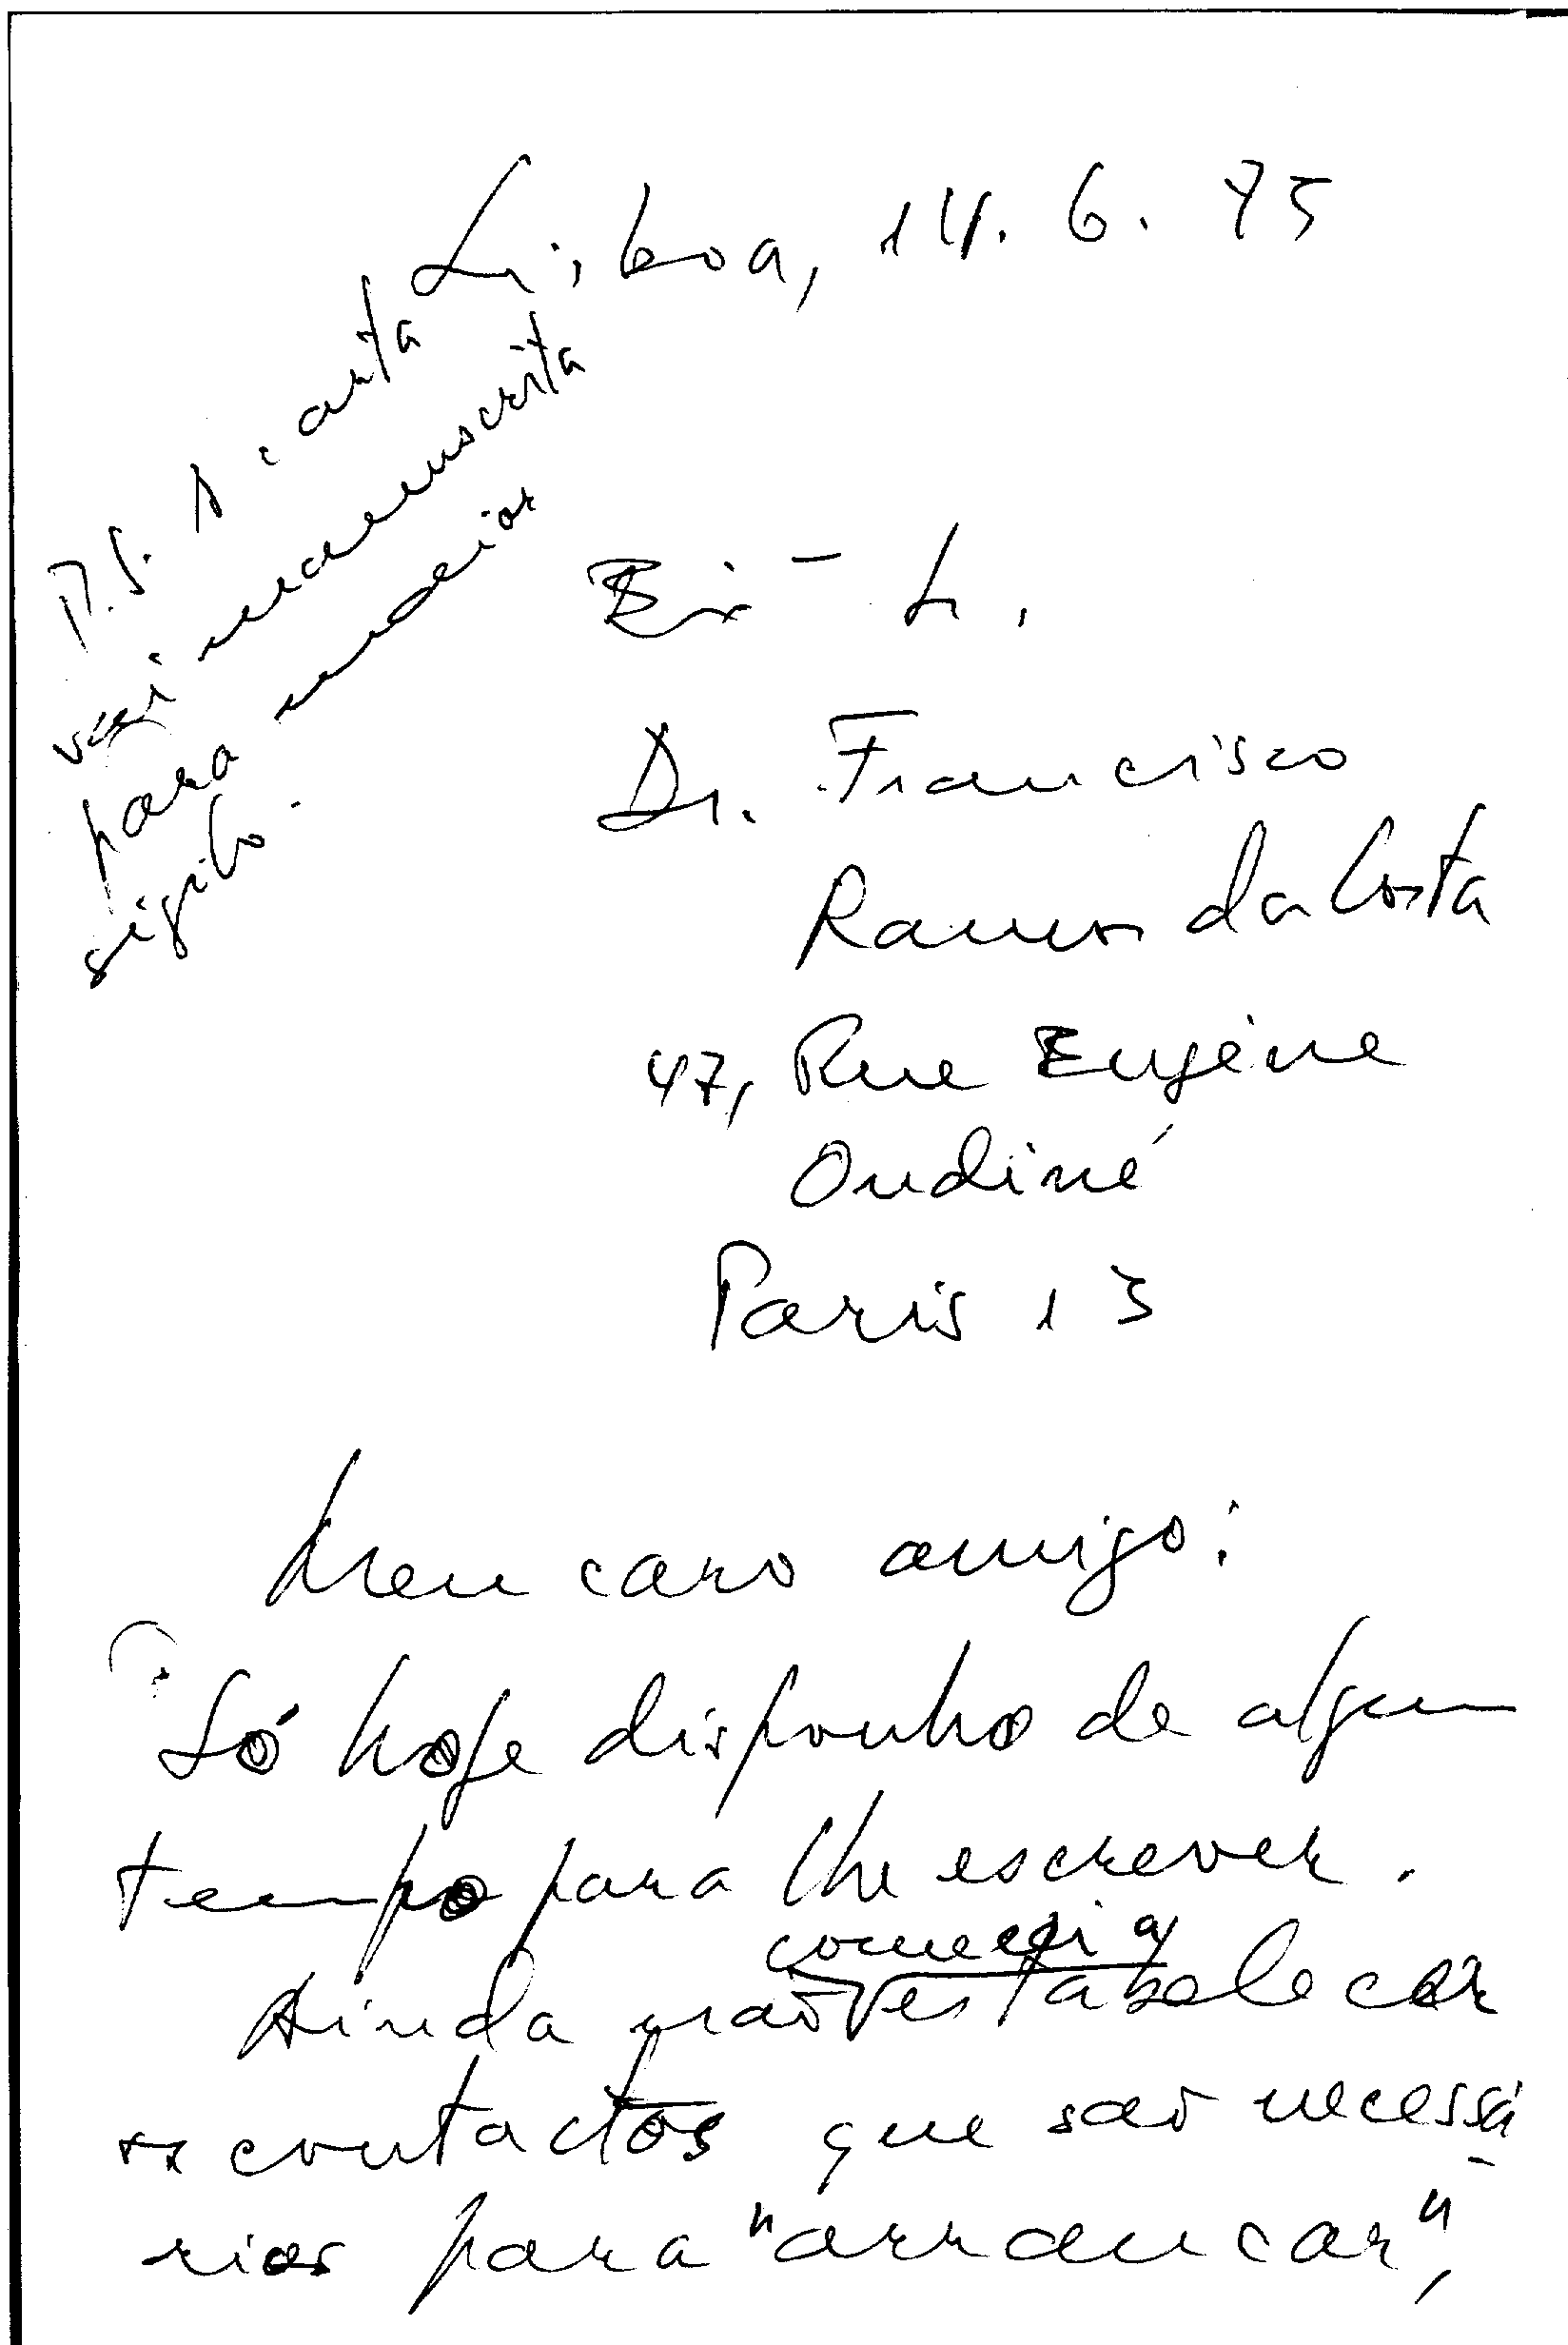 Lisboa, 14.6.75
P.S. A carta
vai manuscrita
para maior
sigilo.
Dr. Francisco
Ramos da Costa
47, Rue Eugène
Oudiné
Paris 13
Meu caro amigo:
Só hoje disponho de algum
tempo para lhe escrever.
comecei a
Ainda não estabelecer
os contactos que são necessá
rios para "arrancar",